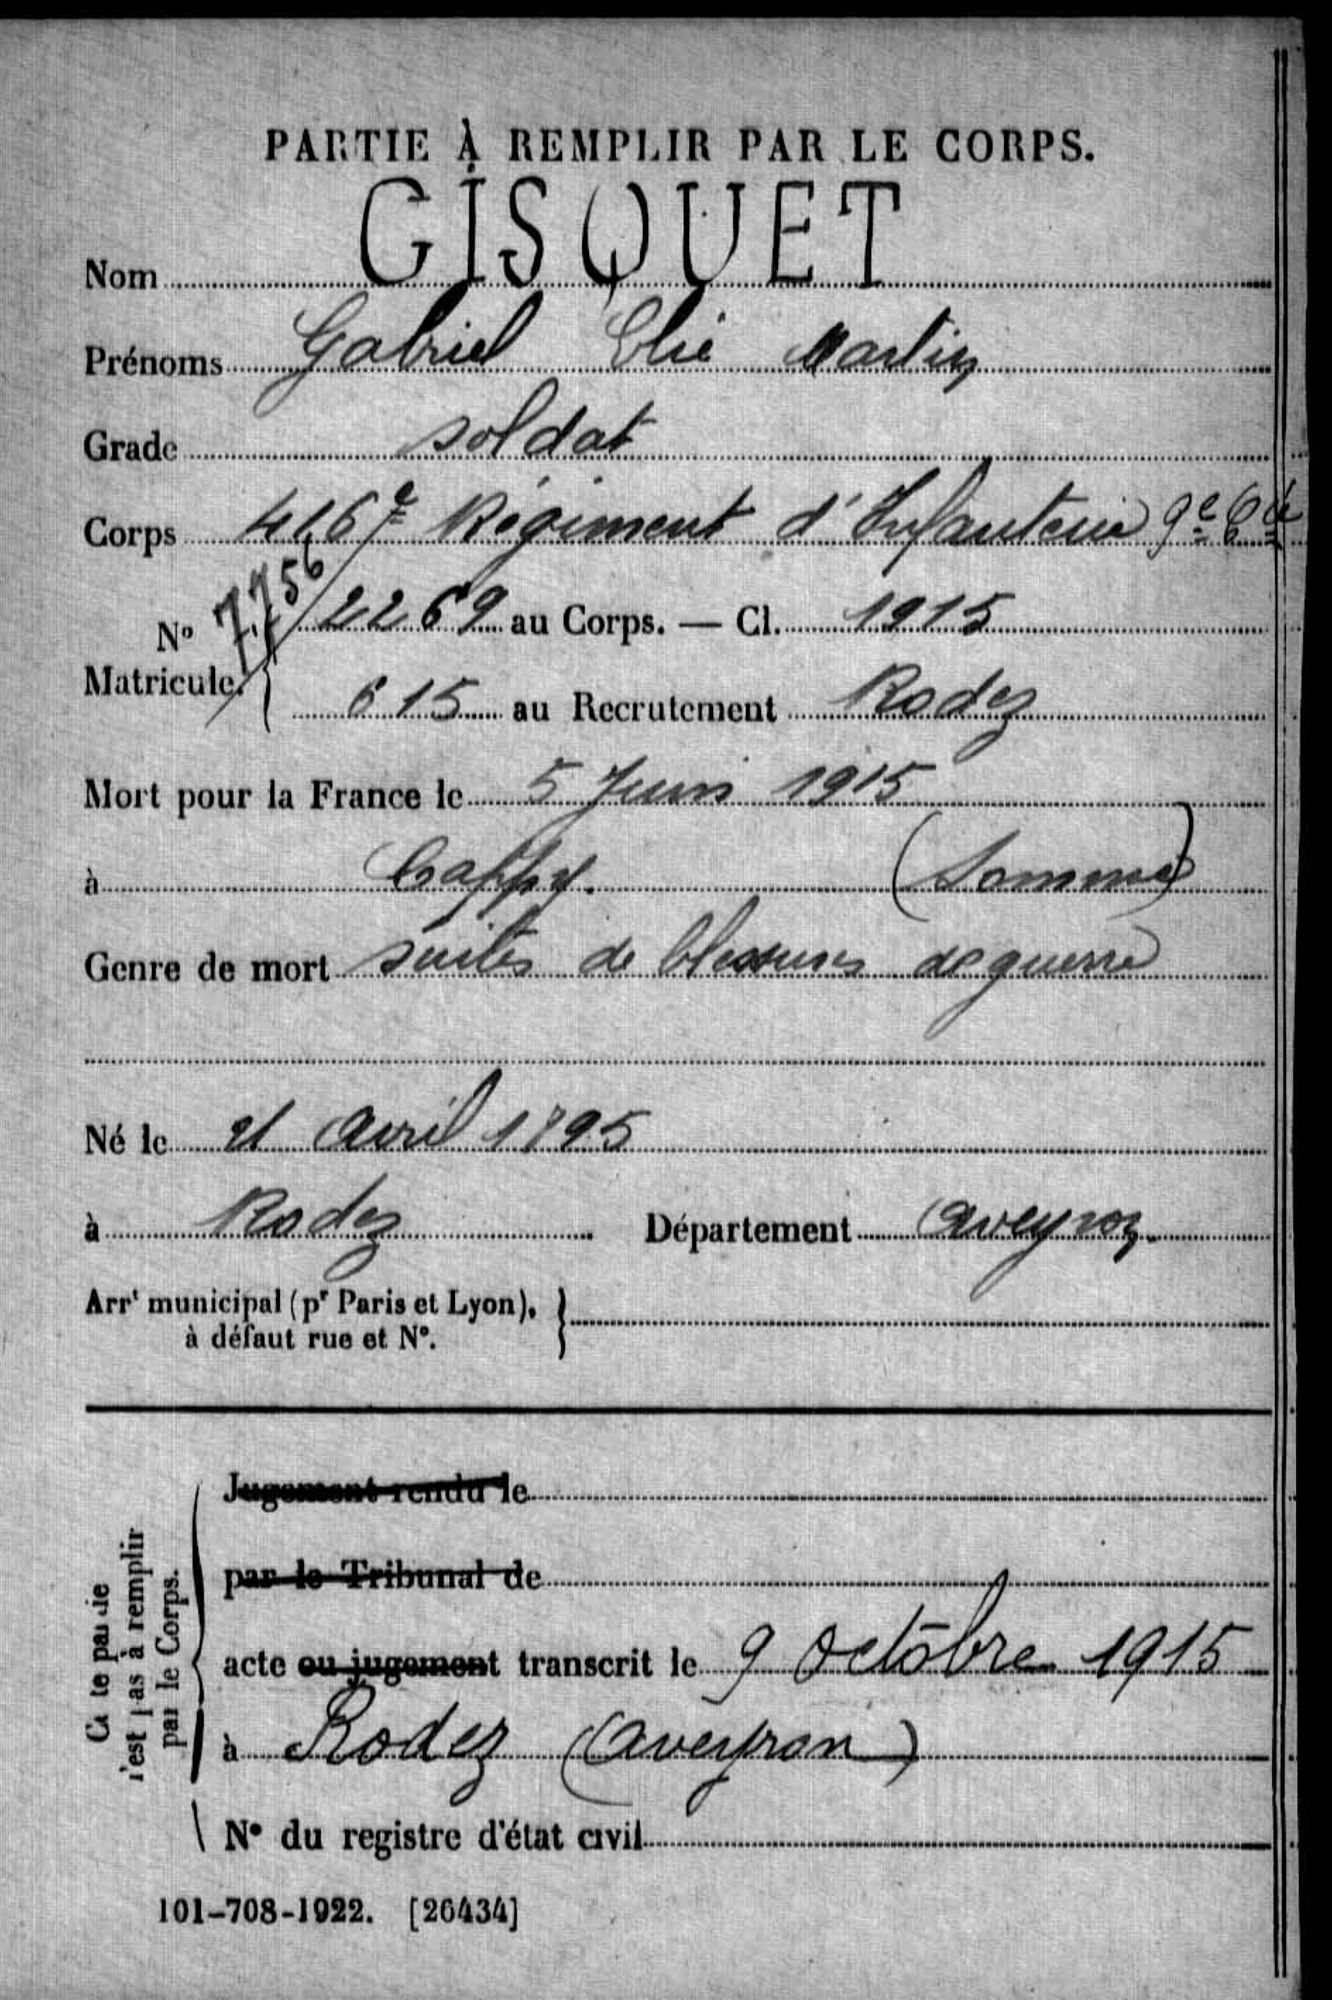 PARTIE À REMPLIR PAR LE CORPS.
Nom GISQUET
Prénoms Gabriel Elie Martin
Grade soldat
Corps 416e Régiment d'Infanterie 9e Cie
7.756
No Matricule. 2269 au Corps. — Cl. 1915
615 au Recrutement Rodez
Mort pour la France le 5 Juin 1915
à Cappy. (Somme)
Genre de mort suites de blessures de guerre
Né le 21 Avril 1895
à Rodez Département Aveyron.
Arrt municipal (pr Paris et Lyon),
à défaut rue et N°.
Jugement rendu le
par le Tribunal de
acte ou jugement transcrit le 9 Octobre 1915
à Rodez (Aveyron)
N° du registre d'état civil
Cette partie
n'est pas à remplir
par le Corps.
101-708-1922. [26434]